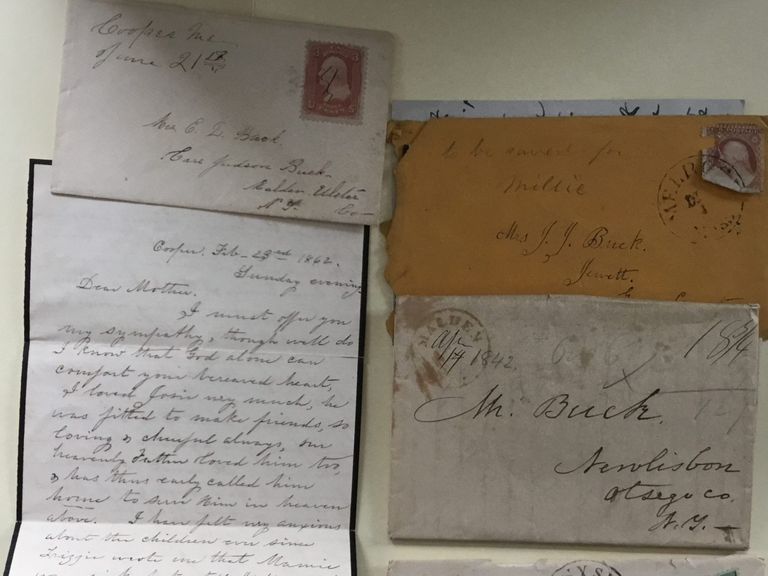 Cooper Me
Jan 21st
3 3
U S
Mrs E. D. Buck.
Care Judson Buck.
Malden, Ulster
N.Y. Co
to be saved for
Millie
Mrs J. J. Buck.
Jewett.
Cooper. Feb - 23rd 1862.
Sunday evening
Dear Mother.
I must offer you
my sympathy, though well do
I know that God alone can
comfort your bereaved heart,
I loved Josie very much, he
was fitted to make friends, so
loving & cheerful always, our
heavenly Father loved him too,
& has thus early called him
home to serve Him in heaven
above. I have felt very anxious
about the children ever since
Lizzie wrote me that Mamie
MALDEN
Apr
14 1842.
18¾
Mr. Buck.
Newlisbon
Otsego Co.
N.Y.